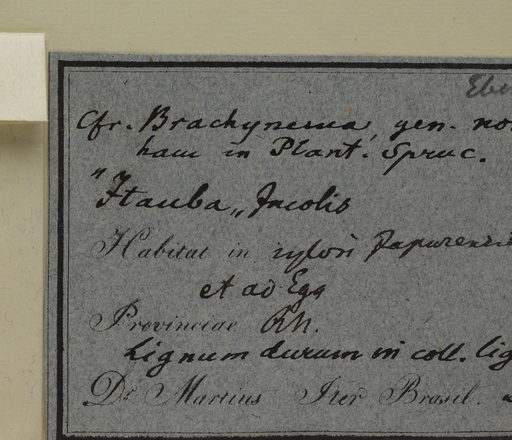 Cfr. Brachynema, gen. no
ham in Plant. Spruc.
"Itauba„ Incolis
Habitat in sylvis Japurensi
et ad Ega
Provinciae Rh.
Lignum durum in coll. lig
Dr. Martius Iter Brasil.